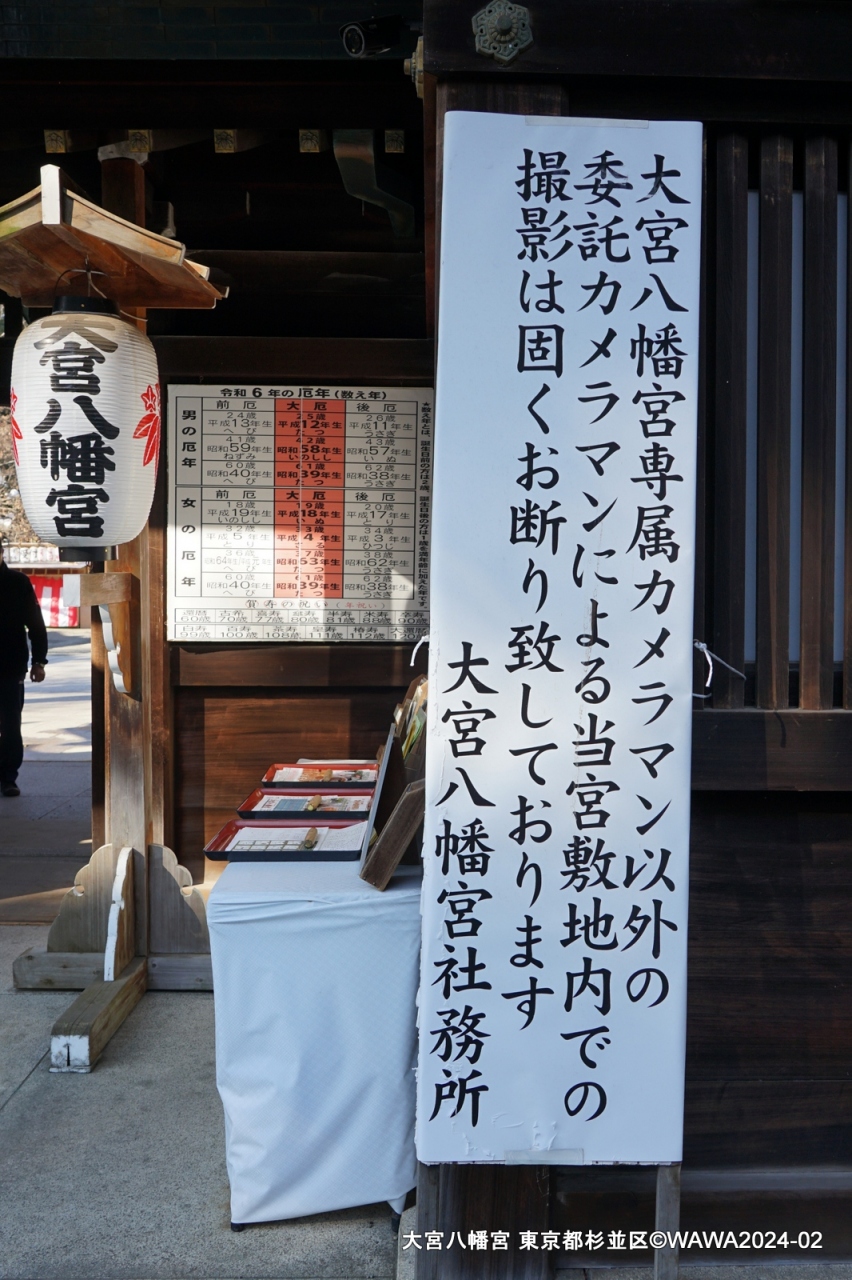 大宮八幡宮専属カメラマン以外の
委託カメラマンによる当宮敷地内での
撮影は固くお断り致しております
大宮八幡宮社務所
大宮八幡宮
令和6年の厄年(数え年)
男の厄年
前厄 大厄 後厄
24歳 25歳 26歳
平成13年生 平成12年生 平成11年生
へび たつ うさぎ
41歳 42歳 43歳
昭和59年生 昭和58年生 昭和57年生
ねずみ いのしし いぬ
60歳 61歳 62歳
昭和40年生 昭和39年生 昭和38年生
へび たつ うさぎ
女の厄年
前厄 大厄 後厄
18歳 19歳 20歳
平成19年生 平成18年生 平成17年生
いのしし いぬ とり
32歳 33歳 34歳
平成5年生 平成4年生 平成3年生
とり さる ひつじ
36歳 37歳 38歳
昭和63年生 昭和62年生
60歳 61歳 62歳
昭和40年生 昭和39年生 昭和38年生
へび たつ うさぎ
賀寿の祝い(年祝い)
還暦 古希 喜寿 傘寿 半寿 米寿 卒寿
60歳 70歳 77歳 80歳 81歳 88歳 90歳
白寿 百寿 茶寿 皇寿 椿寿 大還暦
99歳 100歳 108歳 111歳 112歳 120歳
大宮八幡宮 東京都杉並区©WAWA2024-02